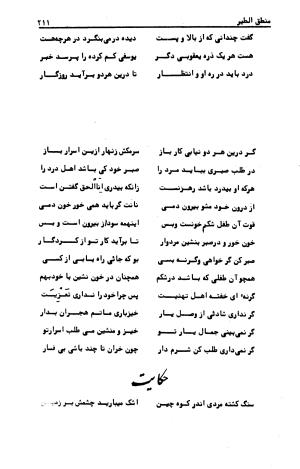 منطق الطیر ۲۱۱
گفت چندانی که از بالا و پست دیده درمی‌بنگرد در هرچه‌هست
هست هر یک ذره یعقوبی دگر یوسفی کم کرده را پرسد خبر
درد باید در ره او و انتظار تا درین هردو برآید روزگار
گر درین هر دو نیابی کار باز سرمکش زنهار ازین اسرار باز
در طلب صبری بباید مرد را صبر خود کی باشد اهل درد را
هرکه او بیدرد باشد رهزنست زانکه بیدردی اناالحق گفتن است
از درون خود مشو بیرون دمی نانت گر باید همی خور خون دمی
قوت آن طفل شکم خونست وبس اینهمه سودا ز بیرون است و بس
خون خور و درصبر بنشین مردوار تا برآید کار تو از کردگار
صبر کن گر خواهی وگرنه بسی بو که جائی راه یابی از کسی
همچو آن طفلی که باشد درشکم همچنان در خون نشین با خودبهم
گرنه‌ای خفته اهل تهنیت پس چرا خود را نداری تعزیت
گر نداری شادئی از وصل یار خیزباری ماتم هجران بدار
گر نمی‌بینی جمال یار تو خیز و منشین می طلب اسرارتو
گر نمی‌داری طلب کن شرم دار چون خران تا چند باشی بی فسار
حکایت
سنگ گشته مردی اندر کوه چین اشک میبارید چشمش بر